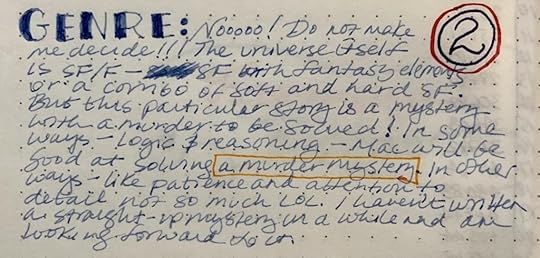 GENRE: Nooooo! Do not make
me decide!!! The universe itself
is SF/F – SF with fantasy elements
or a combo of soft and hard SF.
But this particular story is a mystery
with a murder to be solved! In some
ways – logic & reasoning – Mac will be
good at solving a murder mystery. In other
ways – like patience and attention to
detail not so much LOL. I haven't written
a straight-up mystery in a while and am
looking forward to it.
2